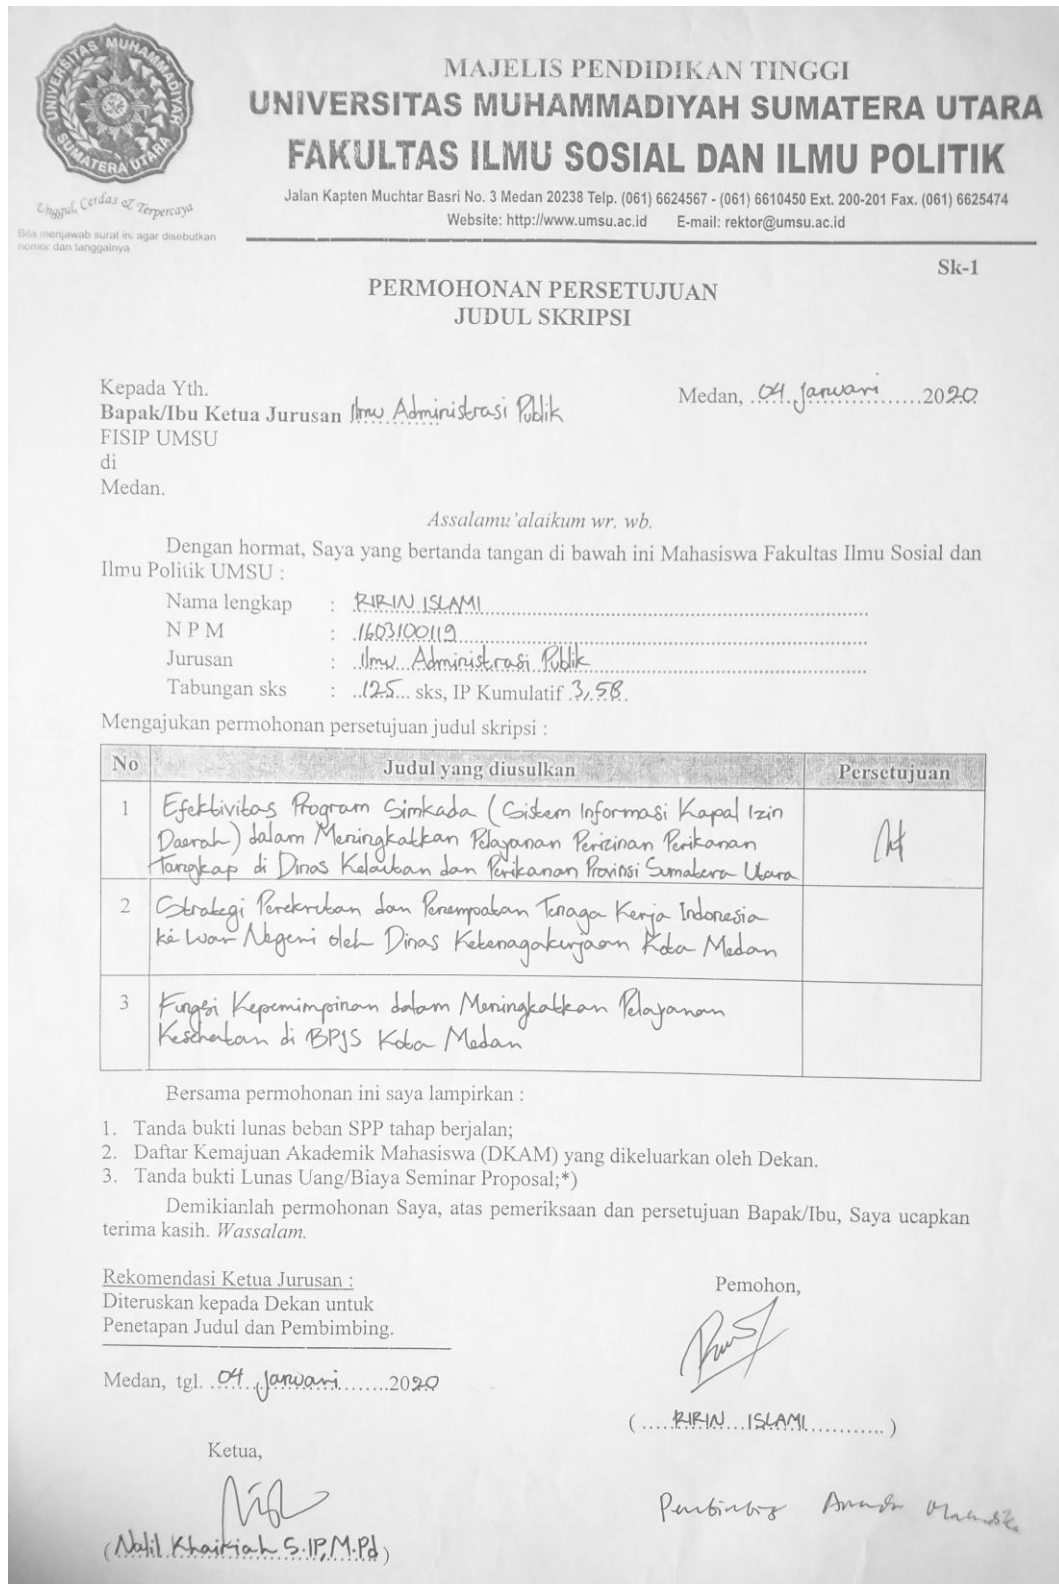 UNIVERSITAS MUHAMMADIYAH
SUMATERA UTARA
Unggul, Cerdas & Terpercaya
Bila menjawab surat ini agar disebutkan
nomor dan tanggalnya
MAJELIS PENDIDIKAN TINGGI
UNIVERSITAS MUHAMMADIYAH SUMATERA UTARA
FAKULTAS ILMU SOSIAL DAN ILMU POLITIK
Jalan Kapten Muchtar Basri No. 3 Medan 20238 Telp. (061) 6624567 - (061) 6610450 Ext. 200-201 Fax. (061) 6625474
Website: http://www.umsu.ac.id E-mail: rektor@umsu.ac.id
Sk-1
PERMOHONAN PERSETUJUAN
JUDUL SKRIPSI
Kepada Yth. Medan, 04 Januari 2020
Bapak/Ibu Ketua Jurusan Ilmu Administrasi Publik
FISIP UMSU
di
Medan.
Assalamu'alaikum wr. wb.
Dengan hormat, Saya yang bertanda tangan di bawah ini Mahasiswa Fakultas Ilmu Sosial dan
Ilmu Politik UMSU :
Nama lengkap : RIRIN ISLAMI
N P M : 1603100119
Jurusan : Ilmu Administrasi Publik
Tabungan sks : 125 sks, IP Kumulatif 3,58
Mengajukan permohonan persetujuan judul skripsi :
No Judul yang diusulkan Persetujuan
1 Efektivitas Program Simkada (Sistem Informasi Kapal Izin
Daerah) dalam Meningkatkan Pelayanan Perizinan Perikanan
Tangkap di Dinas Kelautan dan Perikanan Provinsi Sumatera Utara
2 Strategi Perekrutan dan Penempatan Tenaga Kerja Indonesia
ke Luar Negeri oleh Dinas Ketenagakerjaan Kota Medan
3 Fungsi Kepemimpinan dalam Meningkatkan Pelayanan
Kesehatan di BPJS Kota Medan
Bersama permohonan ini saya lampirkan :
1. Tanda bukti lunas beban SPP tahap berjalan;
2. Daftar Kemajuan Akademik Mahasiswa (DKAM) yang dikeluarkan oleh Dekan.
3. Tanda bukti Lunas Uang/Biaya Seminar Proposal;*)
Demikianlah permohonan Saya, atas pemeriksaan dan persetujuan Bapak/Ibu, Saya ucapkan
terima kasih. Wassalam.
Rekomendasi Ketua Jurusan :
Diteruskan kepada Dekan untuk
Penetapan Judul dan Pembimbing.
Medan, tgl. 04 Januari 2020
Ketua,
(Nalil Khairiah S.IP, M.Pd)
Pemohon,
(RIRIN ISLAMI)
Pembimbing Ananda Mahardika